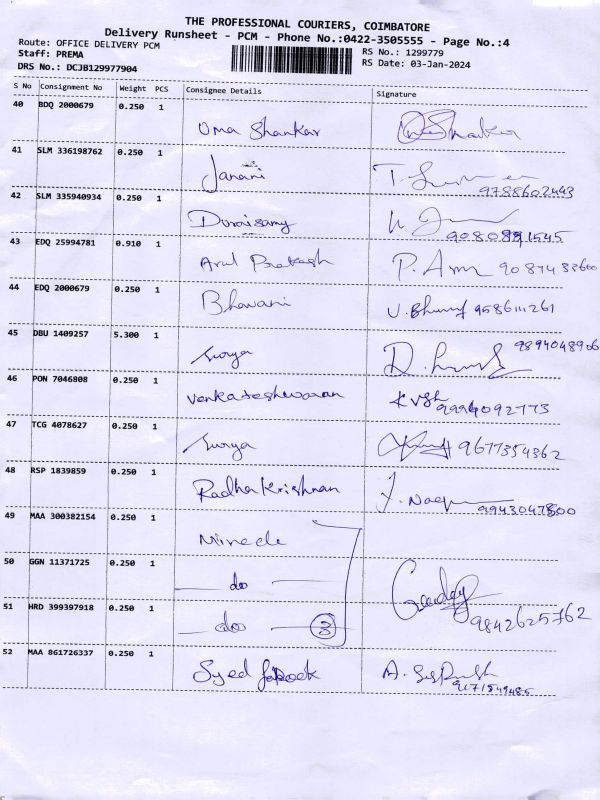 THE PROFESSIONAL COURIERS, COIMBATORE
Delivery Runsheet - PCM - Phone No.:0422-3505555 - Page No.:4
Route: OFFICE DELIVERY PCM
Staff: PREMA
DRS No.: DCJB129977904
RS No.: 1299779
RS Date: 03-Jan-2024
S No Consignment No Weight PCS Consignee Details Signature
40 BDQ 2000679 0.250 1
Uma Shankar
41 SLM 336198762 0.250 1
Janani
9788602443
42 SLM 335940934 0.250 1
Duraisamy
43 EDQ 25994781 0.910 1
Arul Prakash P. Arun
44 EDQ 2000679 0.250 1
Bhavani 9586111261
45 DBU 1409257 5.300 1 9894048906
Surya
46 PON 7046808 0.250 1
Venkateshwaran
9994092773
47 TCG 4078627 0.250 1
Surya 9677354362
48 RSP 1839859 0.250 1
Radha Krishnan
49 MAA 300382154 0.250 1
50 GGN 11371725 0.250 1
do
51 HRD 399397918 0.250 1
do 3
9842625762
52 MAA 861726337 0.250 1
Syed